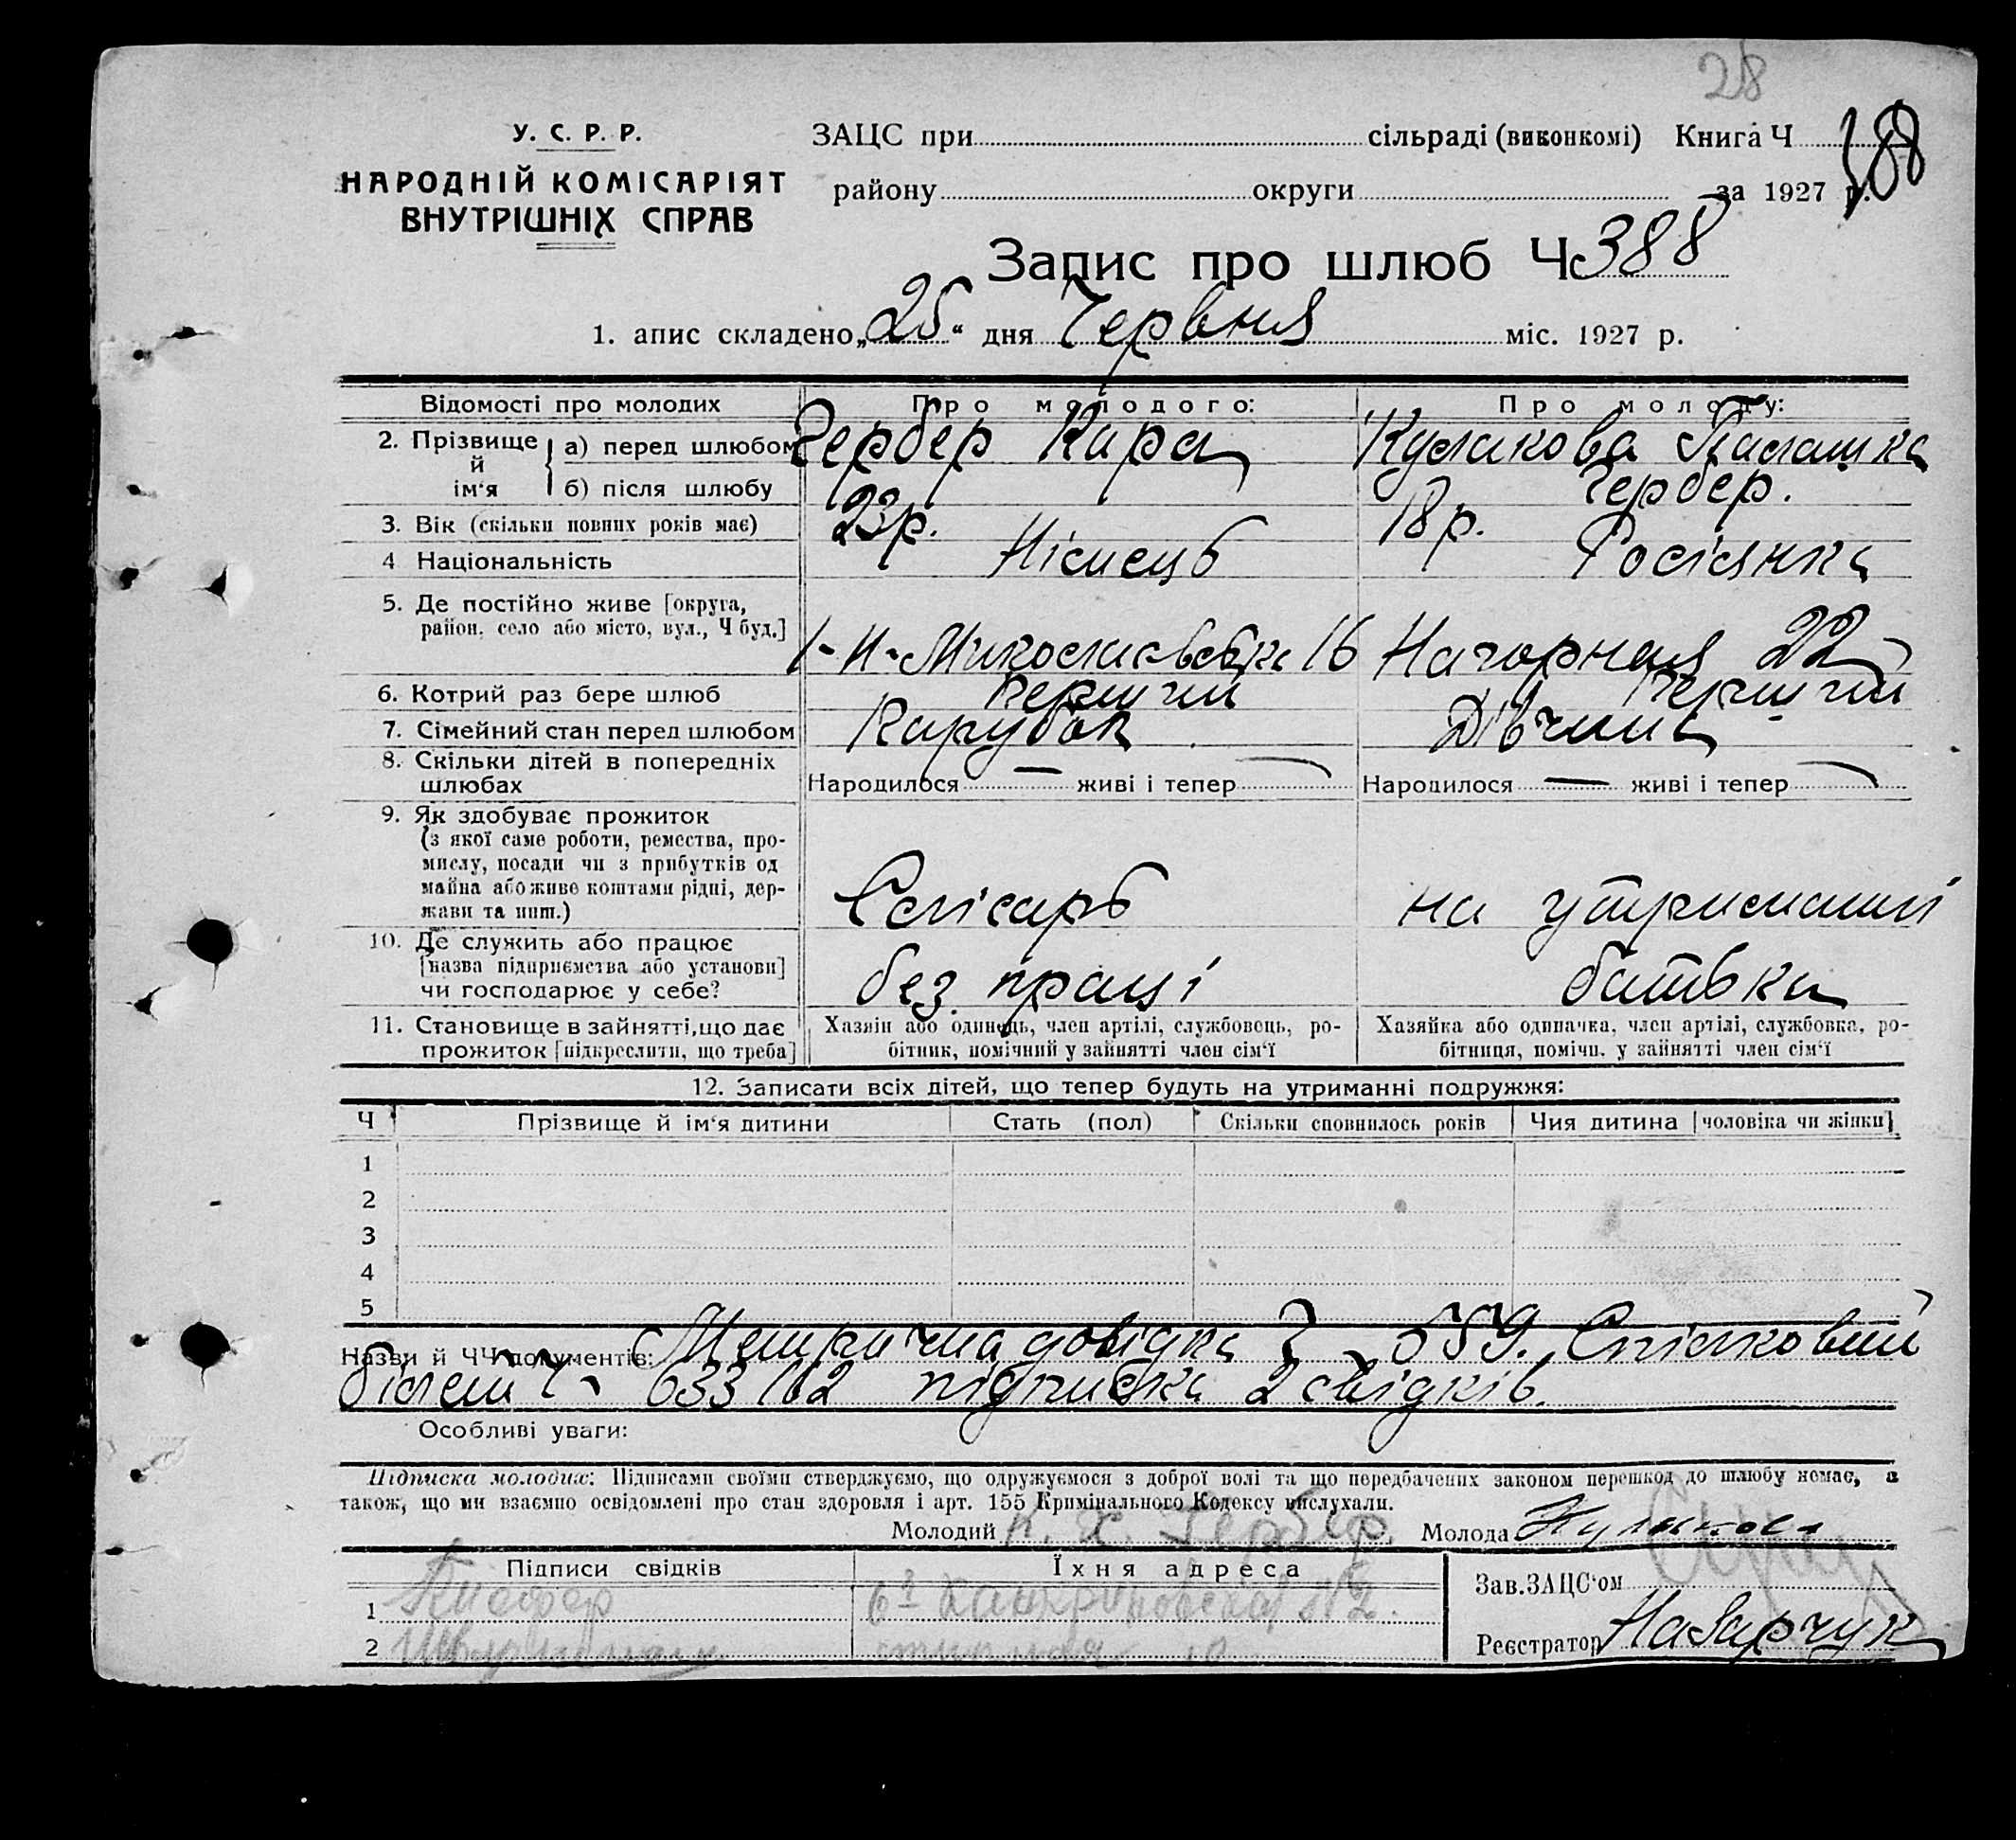 28
У. С. Р. Р.
НАРОДНІЙ КОМІСАРІЯТ
ВНУТРІШНІХ СПРАВ
ЗАЦС при сільраді (виконкомі) Книга Ч 388
району округи за 1927 р.
Запис про шлюб Ч 388
1. апис складено „25“ дня Червня міс. 1927 р.
Відомості про молодих Про молодого: Про молоду:
2. Прізвище й ім‘я
а) перед шлюбом Гербер Кара Кулакова Палашка
б) після шлюбу Гербер.
3. Вік (скільки повних років має) 23 р. 18 р.
4 Національність Німець Росіянка
5. Де постійно живе [округа,
район, село або місто, вул., Ч буд.]
16 Нагорная 22
6. Котрий раз бере шлюб Перший Перший
7. Сімейний стан перед шлюбом Парубок Дівчина
8. Скільки дітей в попередніх
шлюбах
Народилося — живі і тепер — Народилося — живі і тепер —
9. Як здобуває прожиток
(з якої саме роботи, ремества, про-
мислу, посади чи з прибутків од
майна або живе коштами рідні, дер-
жави та инш.)
Слісарь на утриманні
10. Де служить або працює
[назва підприємства або установи]
чи господарює у себе?
без праці батька
11. Становище в зайнятті, що дає
прожиток [підкреслити, що треба]
Хазяїн або одинець, член артілі, службовець, ро-
бітник, помічний у зайнятті член сім‘ї
Хазяйка або одиначка, член артілі, службовка, ро-
бітниця, помічн. у зайнятті член сім‘ї
12. Записати всіх дітей, що тепер будуть на утриманні подружжя:
Ч Прізвище й ім‘я дитини Стать (пол) Скільки сповнилось років Чия дитина [чоловіка чи жінки]
1
2
3
4
5
Назви й ЧЧ документів: Метрична довідка 559. Спілковий
білет Ч 633162 підписка 2 свідків.
Особливі уваги:
Підписка молодих: Підписами своїми стверджуємо, що одружуємося з доброї волі та що передбачених законом перешкод до шлюбу немає, а
також, що ми взаємно освідомлені про стан здоровля і арт. 155 Кримінального Кодексу вислухали.
Молодий К. Х. Гербер. Молода Кулакова
Підписи свідків Їхня адреса
Зав. ЗАЦС‘ом
1
2
Реєстратор Назарчук